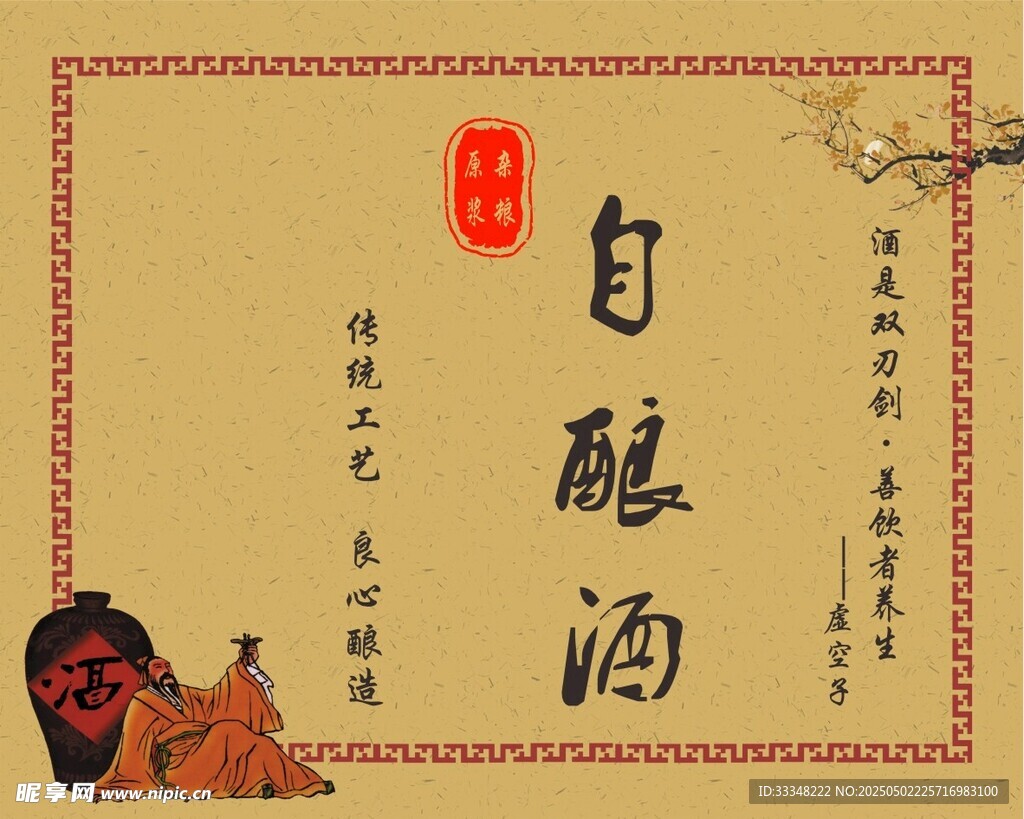 酒是双刃剑·善饮者养生
——虚空子
自酿酒
杂粮
原浆
传统工艺 良心酿造
酒
昵享网 www.nipic.cn
ID:33348222 NO:20250502225716983100